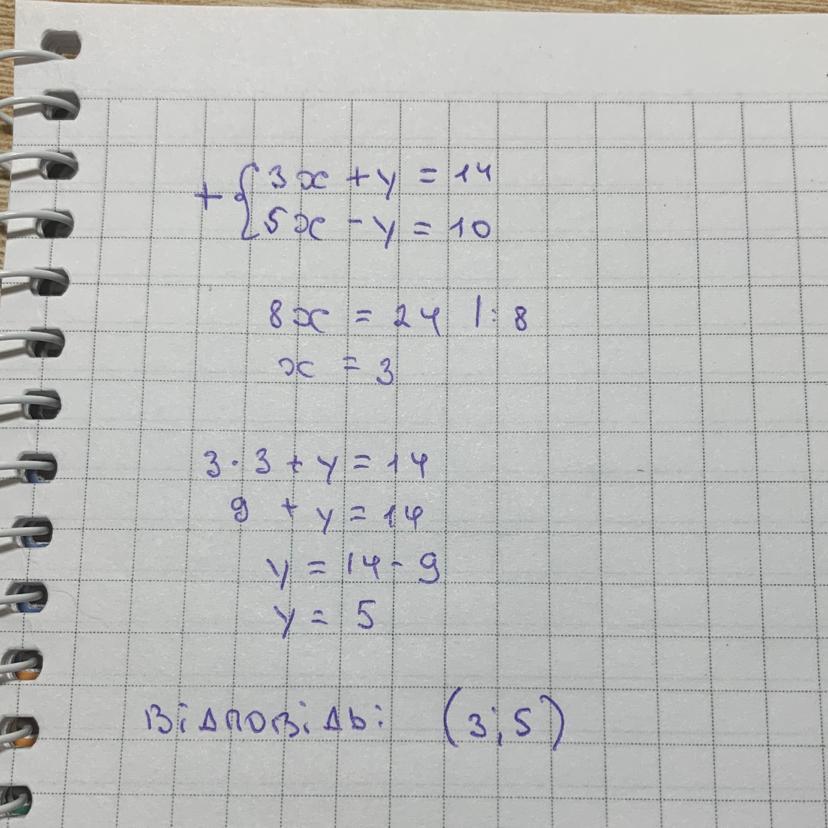 + { 3x + y = 14
5x - y = 10
8x = 24 |: 8
x = 3
3 · 3 + y = 14
9 + y = 14
y = 14 - 9
y = 5
Відповідь: (3; 5)